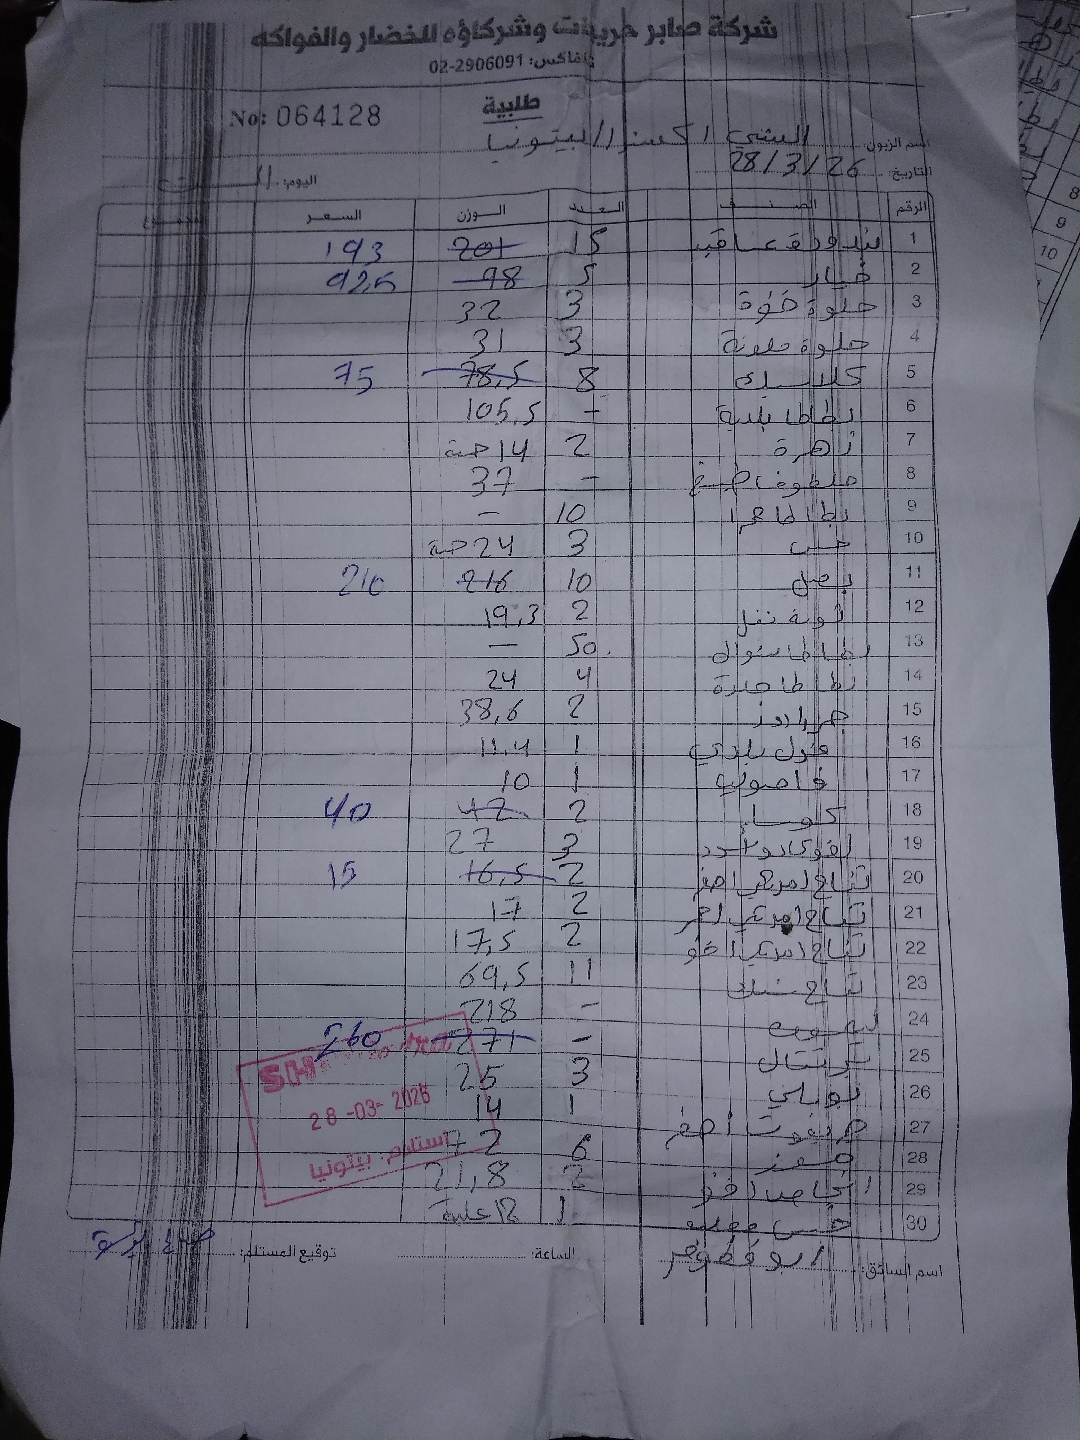 شركة صابر حريزات وشركاؤه للخضار والفواكه
تلفاكس: 02-2906091
No: 064128
طلبية
اسم الزبون الشني اكسترا / بيتونيا
التاريخ: 28/3/26
اليوم: السبت
الرقم الصنف العدد الوزن السعر المجموع
1 بندورة عناقيد 15 201 193
2 خيار 5 98 92,5
3 حلوة 3 32
4 حلوة ملونة 3 31
5 كلاسيك 8 78,5 75
6 بطاطا بلدية - 105,5
7 زهرة 2 14 حبة
8 ملفوف - 37
9 بطاطا 10 -
10 خس 3 24 حبة
11 بصل 10 216 210
12 2 19,3
13 بطاطا 50 -
14 بطاطا 4 24
15 2 38,6
16 فول بلدي 1 11,4
17 فاصوليا 1 10
18 كوسا 2 42 40
19 افوكادو 3 27
20 تفاح امريكي اصفر 2 16,5 15
21 تفاح امريكي احمر 2 17
22 تفاح امريكي اخضر 2 17,5
23 تفاح 11 69,5
24 ليمون - 218
25 برتقال - 271 260
26 بوملي 3 25
27 جريفوت احمر 1 14
28 موز 6 72
29 اجاص اخضر 2 21,8
30 خس 1 12 علبة
28 -03- 2026
استلام: بيتونيا
اسم السائق:
الساعة:
توقيع المستلم: